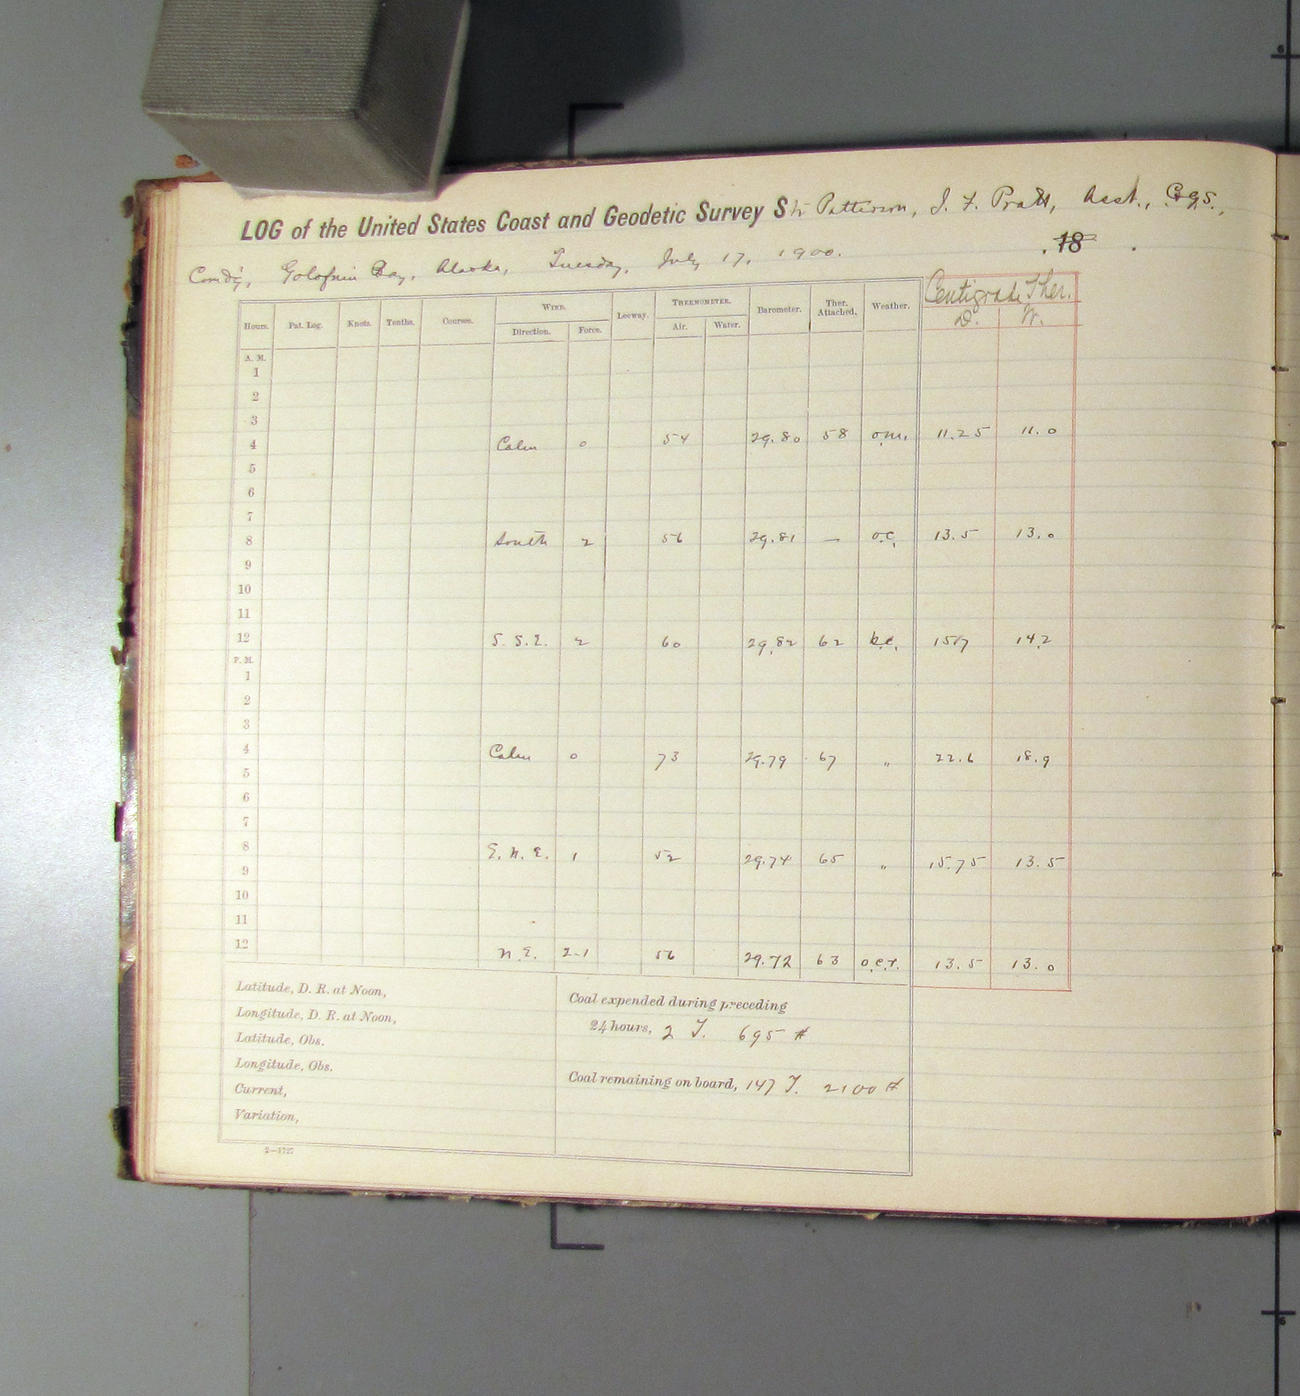 LOG of the United States Coast and Geodetic Survey Str Patterson, J. F. Pratt, Asst., C&GS.,
Comd'g, Golofnin Bay, Alaska, Tuesday, July 17, 1900. , 18 .
Hours. Pat. Log. Knots. Tenths. Courses. WIND. Direction. Force. Leeway. THERMOMETER. Air. Water. Barometer. Ther. Attached. Weather. Centigrade Ther. D. W.
A. M.
1
2
3
4 Calm 0 54 29.80 58 o.m. 11.25 11.0
5
6
7
8 South 2 56 29.81 — o.c. 13.5 13.0
9
10
11
12 S. S. E. 2 60 29.82 62 b.c. 15.7 14.2
P. M.
1
2
3
4 Calm 0 73 29.79 67 " 22.6 18.9
5
6
7
8 E. N. E. 1 52 29.74 65 " 15.75 13.5
9
10
11
12 N. E. 2-1 56 29.72 63 o.c.r. 13.5 13.0
Latitude, D. R. at Noon,
Longitude, D. R. at Noon,
Latitude, Obs.
Longitude, Obs.
Current,
Variation,
Coal expended during preceding
24 hours, 2 T. 695 #
Coal remaining on board, 147 T. 2100 #
2—1727